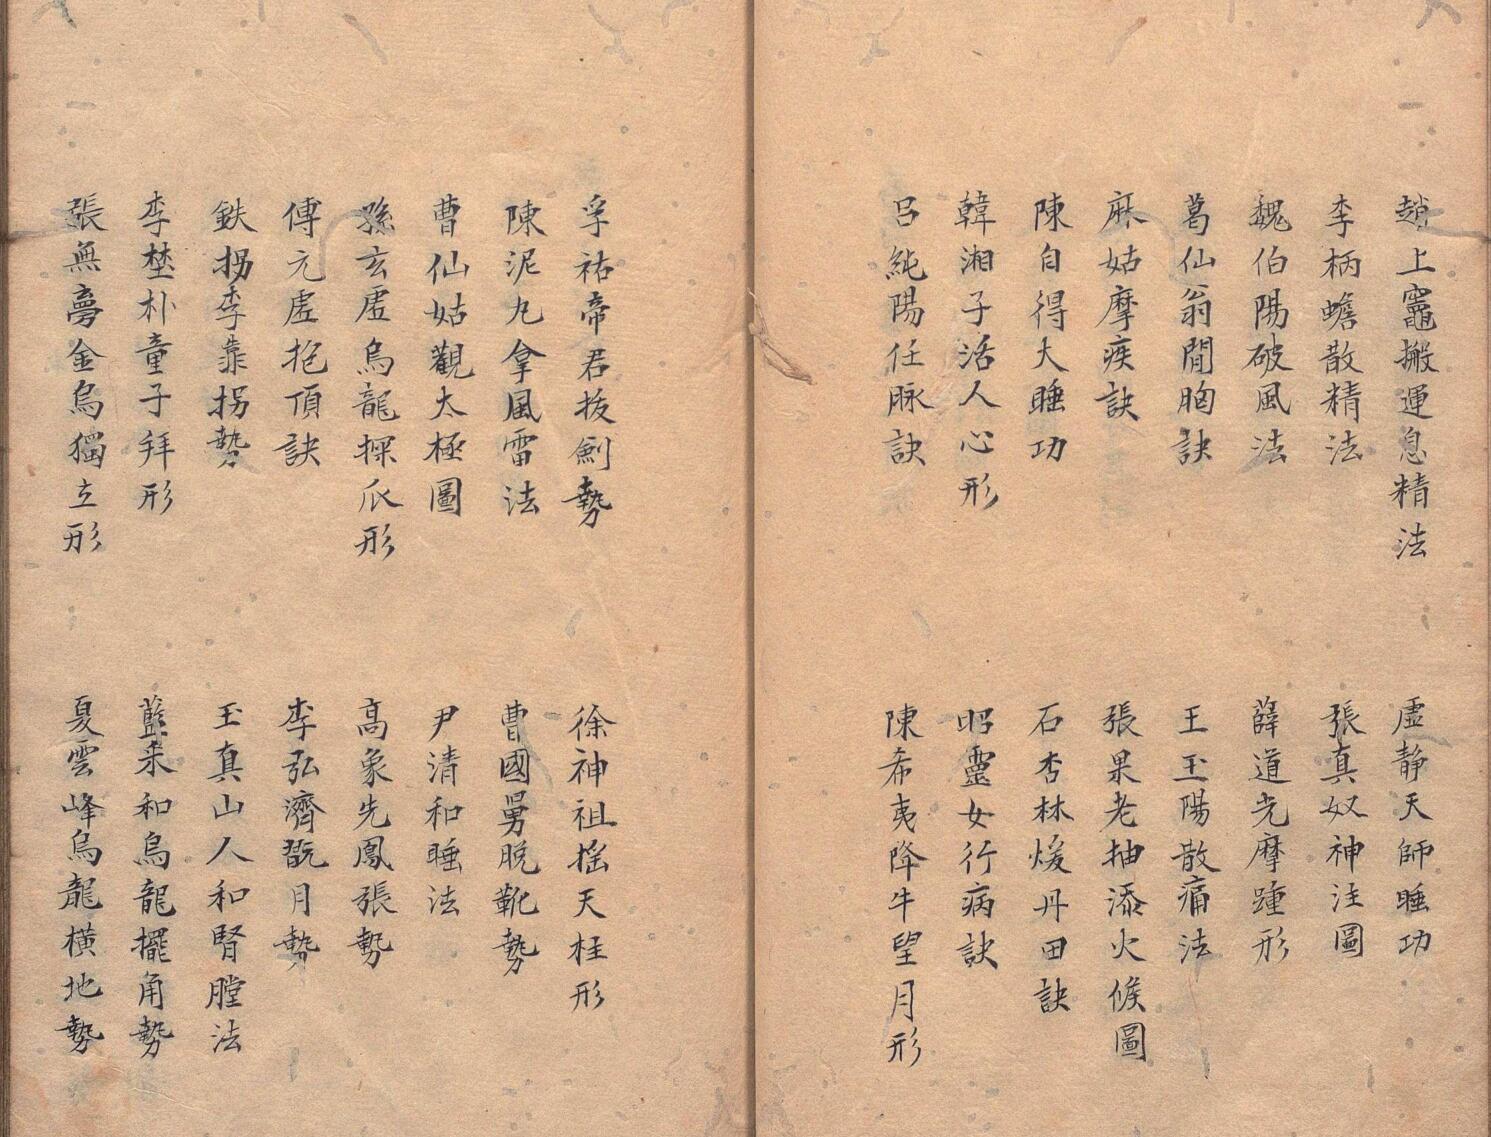 趙上竈搬運息精法
虛靜天師睡功
李柄蟾散精法
張真奴神注圖
魏伯陽破風法
薛道光摩踵形
葛仙翁開胸訣
王玉陽散痛法
麻姑摩疾訣
張果老抽添火候圖
陳自得大睡功
石杏林煖丹田訣
韓湘子活人心形
昭靈女行病訣
呂純陽任脉訣
陳希夷降牛望月形
孚祐帝君拔劍勢
徐神祖搖天柱形
陳泥丸拿風雷法
曹國舅脫靴勢
曹仙姑觀太極圖
尹清和睡法
孫玄虛烏龍探爪形
高象先鳳張勢
傅元虛抱頂訣
李弘濟翫月勢
鉄拐李靠拐勢
玉真山人和腎膛法
李埜朴童子拜形
藍采和烏龍擺角勢
張無夢金烏獨立形
夏雲峰烏龍橫地勢